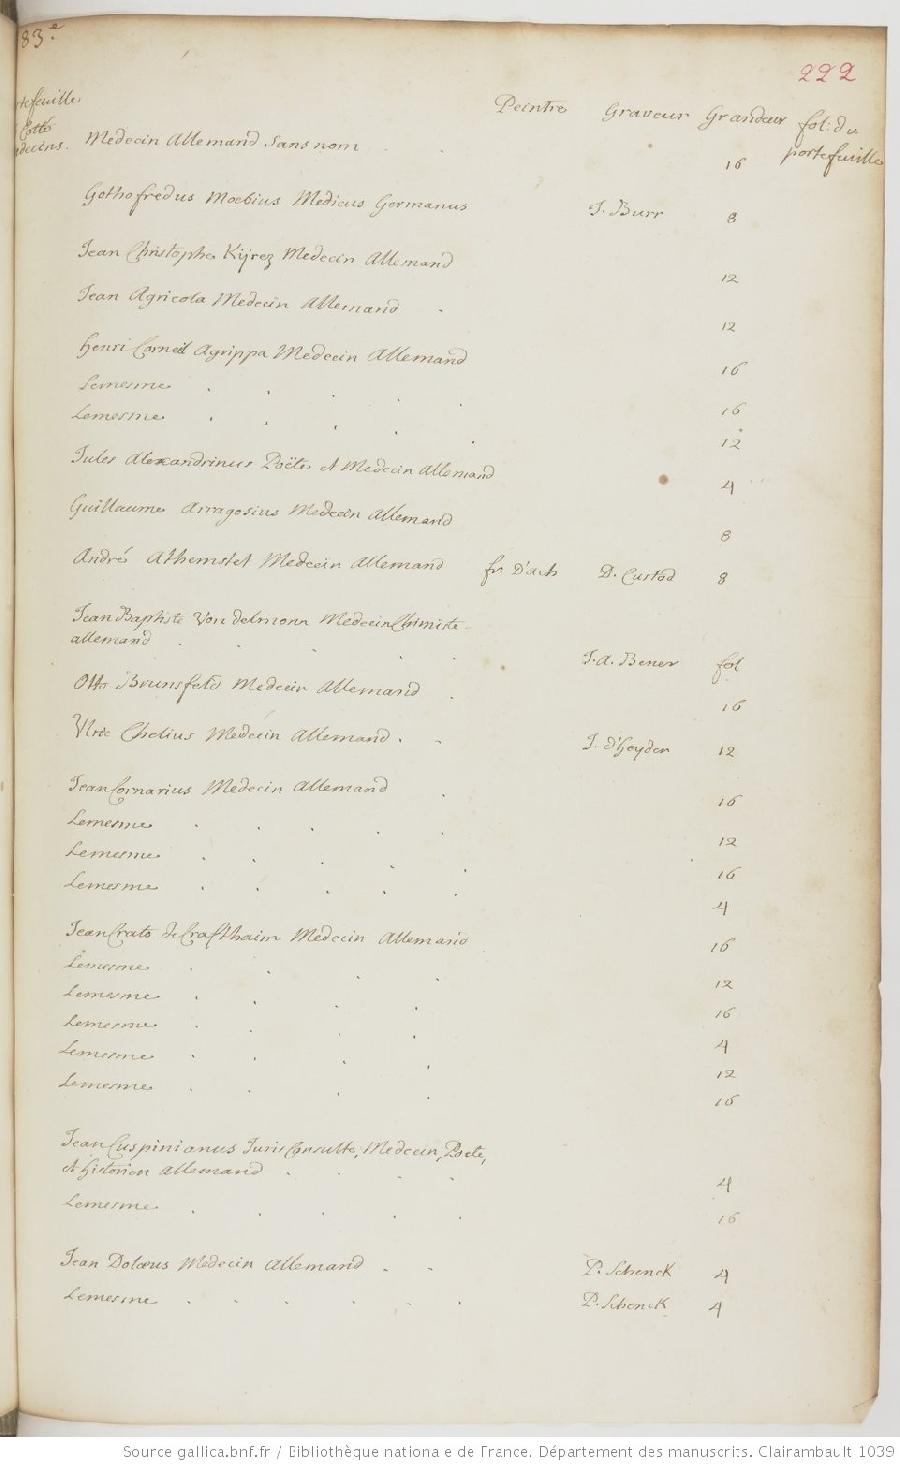 83.e
222
Peintre Graveur Grandeur fol: du portefeuille
Medecin Allemand sans nom 16
Gothofredus Moebius Medicus Germanus J. Burr 8
Jean Christophe Kijrez Medecin Allemand 12
Jean Agricola Medecin Allemand 12
Henri Corneil Agrippa Medecin Allemand 16
Lemesme 16
Lemesme 12
Jules Alexandrinus Poëte et Medecin Allemand 4
Guillaume Arragosius Medecin Allemand 8
André Athemstet Medecin Allemand fr. D'ach D. Custod 8
Jean Baptiste Von Medecin Chimiste
allemand J. A. Bener fol
Otto Brunsfeld Medecin Allemand 16
Ulric Chelius Medecin Allemand J. d'heyden 12
Jean Cornarius Medecin Allemand 16
Lemesme 12
Lemesme 16
Lemesme 4
Jean Crato de Crafthaim Medecin Allemand 16
Lemesme 12
Lemesme 16
Lemesme 4
Lemesme 12
Lemesme 16
Jean Cuspinianus JurisConsulte, Medecin, Poete,
et historien allemand 4
Lemesme 16
Jean Dolaeus Medecin Allemand P. Schenck 4
Lemesme P. Schenck 4
Source gallica.bnf.fr / Bibliothèque nationale de France. Département des manuscrits. Clairambault 1039